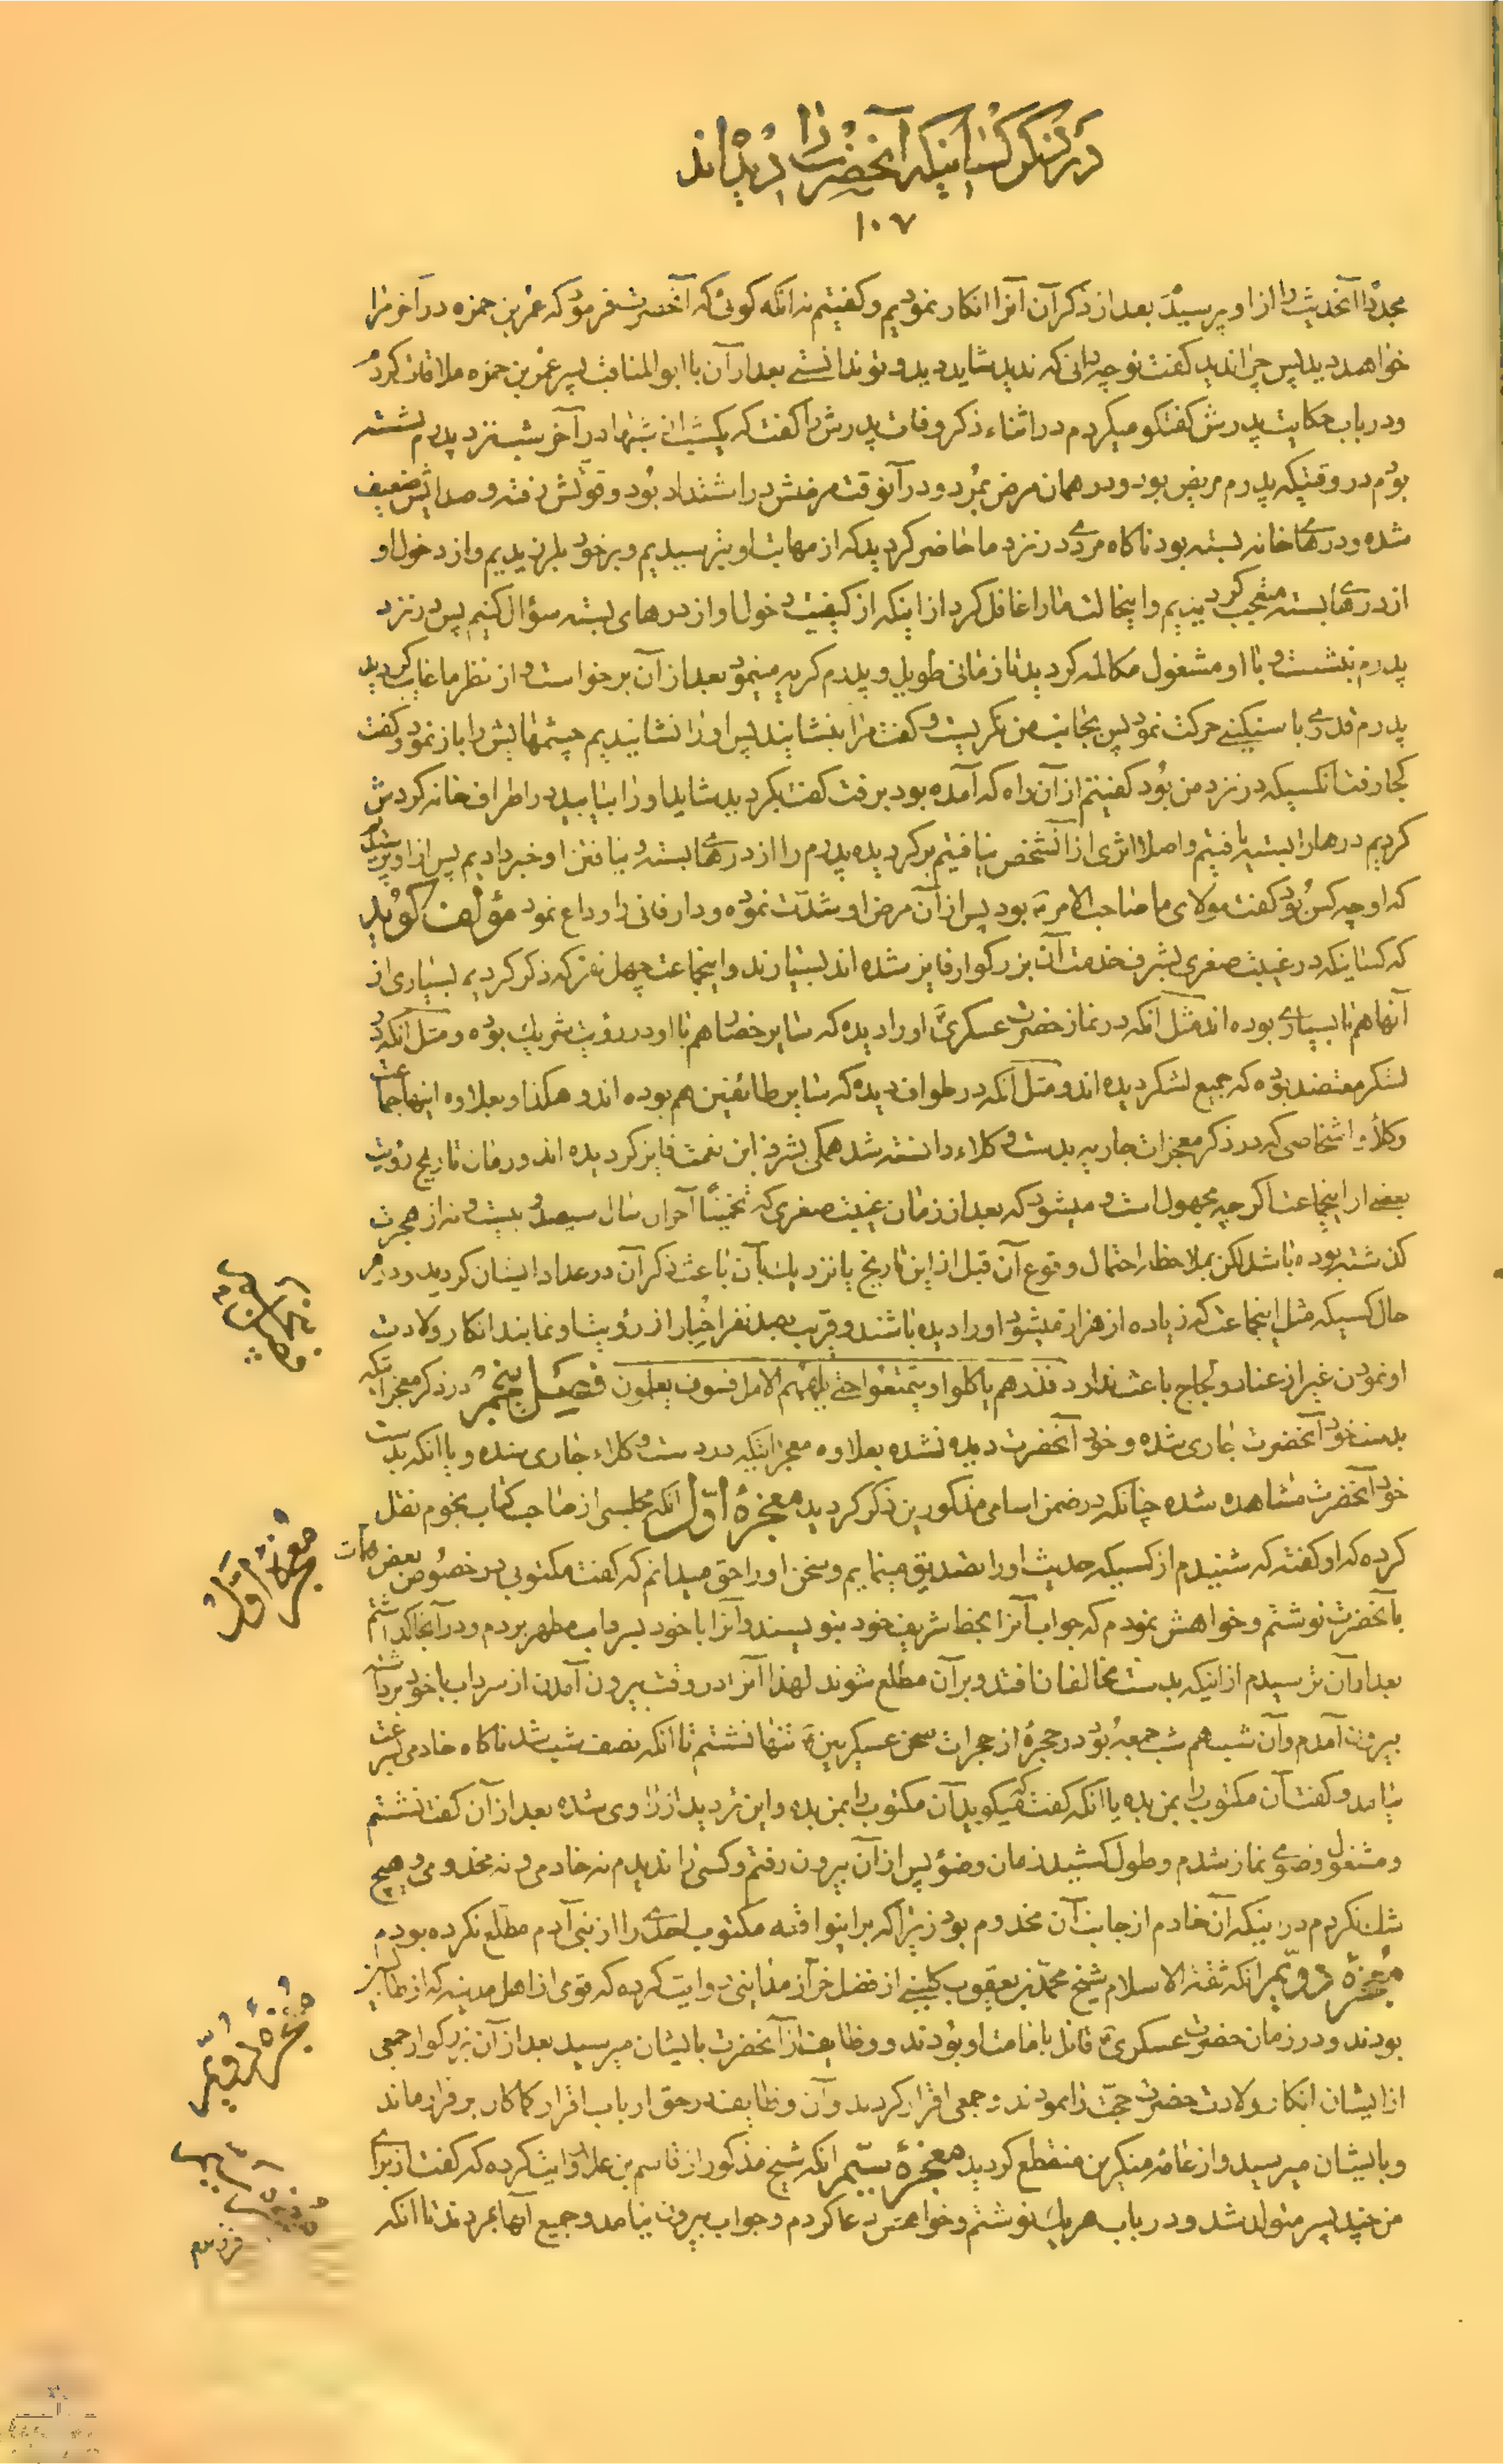 در ذکر کسانیکه آنحضرت را دیده اند
۱۰۷
مجدّدا آنحدیث را از او پرسید بعد از ذکر آن آنرا انکار نمودیم و کفتیم نه انکه کوئی که آنحضرت فرمود که عمر بن حمزه در آخر مرا
خواهد دید پس چرا ندید کفت تو چه دانی که ندید شاید دید و تو ندانستی بعد از آن با ابوالمناقب پسر عمر بن حمزه ملاقات کردم
و در باب حکایت پدرش کفتکو میکردم در اثناء ذکر وفات پدرش را کفت که یکشب از شبها در آخر شب نزد پدرم نشسته
بودم در وقتیکه پدرم مریض بود و در همان مرض بمرد و در آنوقت مرضش در اشتداد بود و قوّتش رفته و صدایش ضعیف
شده و درهای خانه بسته بود ناکاه مردی در نزد ما حاضر کردید که از مهابت او بترسیدیم و بر خود بلرزیدیم و از دخول او
از درهای بسته متعجب کردیدیم و اینحالت ما را غافل کرد از اینکه از کیفیت دخول او از درهای بسته سؤال کنیم پس در نزد
پدرم بنشست و با او مشغول مکالمه کردید تا زمانی طویل و پدرم کریه مینمود بعد از آن برخواست و از نظر ما غایب کردید
پدرم قدری با سنکینی حرکت نمود پس بجانب من نکریست و کفت مرا بنشانید پس او را نشانیدیم چشمهایش را باز نمود و کفت
کجا رفت انکسیکه در نزد من بود کفتیم از آن راه که آمده بود برفت کفت بکردید شاید او را بیابید در اطراف خانه کردش
کردیم درها را بسته یافتیم و اصلا اثری از آنشخص نیافتیم برکردیده پدرم را از درهای بسته و نیافتن او خبر دادیم پس از او پرسیدیم
که او چه کس بود کفت مولای ما صاحب الامر بود پس از آن مرض او شدّت نموده و دار فانی را وداع نمود مؤلف کوید
که کسانیکه در غیبت صغری بشرف خدمت آن بزرکوار فایز شده اند بسیارند و اینجماعت چهل نفر که ذکر کردیم بسیاری از
آنها هم با بسیاری بوده اند مثل انکه در نماز حضرت عسکری او را دیده که سایر حضار هم با او در رؤیت شریک بوده و مثل انکه در
لشکر معتضد بوده که جمیع لشکر دیده اند و مثل انکه در طواف دیده که سایر طائفین هم بوده اند و هکذا و بعلاوه اینها جماعت
وکلاء و اشخاصی که در ذکر معجزات جاریه بدست وکلاء دانسته شد همکی بشرف این نعمت فایز کردیده اند و زمان تاریخ رؤیت
بعضی از اینجماعت اکرچه مجهول است و میشود که بعد از زمان غیبت صغری که تخمینًا آخر آن سال سیصد و بیست و نه از هجرت
کذشته بوده باشد لکن بملاحظه احتمال وقوع آن قبل از این تاریخ یا نزدیک بآن باعث ذکر آن در عداد ایشان کردید و در هر
حال کسیکه مثل اینجماعت که زیاده از هزار میشود او را دیده باشند و قریب بصد نفر اخبار از رؤیت او نمایند انکار ولادت
او نمودن غیر از عناد و لجاج باعث ندارد فذرهم یاکلوا و یتمتعوا حتی یلههم الامل فسوف یعلمون فصل پنجم در ذکر معجزاتیکه
بدست خود آنحضرت جاری شده و خود آنحضرت دیده نشده بعلاوه معجزاتیکه در دست وکلاء جاری شده و یا انکه بدست
خود آنحضرت مشاهده شده چنانکه در ضمن اسامی مذکورین ذکر کردید معجزهٔ اوّل انکه مجلسی از صاحب کتاب نجوم نقل
کرده که او کفته که شنیدم از کسیکه حدیث او را تصدیق مینمایم و سخن او را حق میدانم که کفت مکتوبی در خصوص بعض مهمات
بآنحضرت نوشتم و خواهش نمودم که جواب آنرا بخط شریف خود بنویسند و آنرا با خود بسرداب مطهر بردم و در آنجا کذاشتم
بعد از آن ترسیدم از اینکه بدست مخالفان افتد و بر آن مطّلع شوند لهذا آنرا در وقت بیرون آمدن از سرداب با خود برداشته
بیرون آمدم و آن شب هم شب جمعه بود در حجرهٔ از حجرات صحن عسکریین تنها نشستم تا انکه نصف شب شد ناکاه خادمی بسرعت
بیامد و کفت آن مکتوب را بمن بده یا انکه کفت که میکوید آن مکتوب را بمن بده و این تردید از راوی شده بعد از آن کفت نشستم
و مشغول وضوی نماز شدم و طول کشید زمان وضؤ پس از آن بیرون رفتم و کسی را ندیدم نه خادمی و نه مخدومی و هیچ
شک نکردم در اینکه آن خادم از جانب آن مخدوم بود زیرا که بر اینواقعه مکتوب احدی را از بنی آدم مطّلع نکرده بودم
معجزهٔ دویّم انکه ثقة الاسلام شیخ محمّد بن یعقوب کلینی از فضل خزاز مداینی روایت کرده که قومی از اهل مدینه که از طالبیین
بودند و در زمان حضرت عسکری قائل بامامت او بودند و وظایف از آنحضرت بایشان میرسید بعد از آن بزرکوار جمعی
از ایشان انکار ولادت حضرت حجّت را نمودند و جمعی اقرار کردند و آن وظایف در حق ارباب اقرار کماکان برقرار ماند
و بایشان میرسید و از عامه منکرین منقطع کردید معجزهٔ سیّم انکه شیخ مذکور از قاسم بن علا روایت کرده که کفت از برای
من چند پسر متولد شد و در باب هر یک نوشتم و خواهش دعا کردم و جواب بیرون نیامد و جمیع آنها بمردند تا انکه
معجزهٔ اوّل
معجزهٔ دویّم